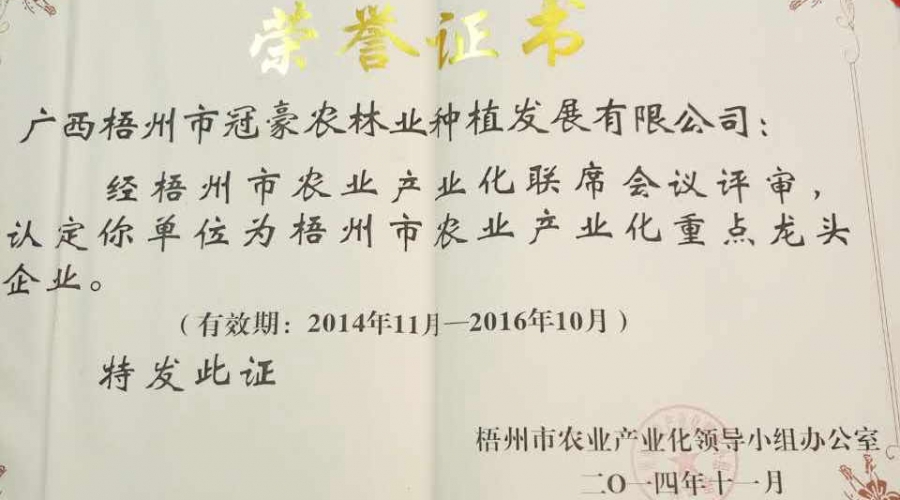 荣誉证书
广西梧州市冠豪农林业种植发展有限公司：
经梧州市农业产业化联席会议评审，
认定你单位为梧州市农业产业化重点龙头
企业。
（有效期：2014年11月—2016年10月）
特发此证
梧州市农业产业化领导小组办公室
二〇一四年十一月